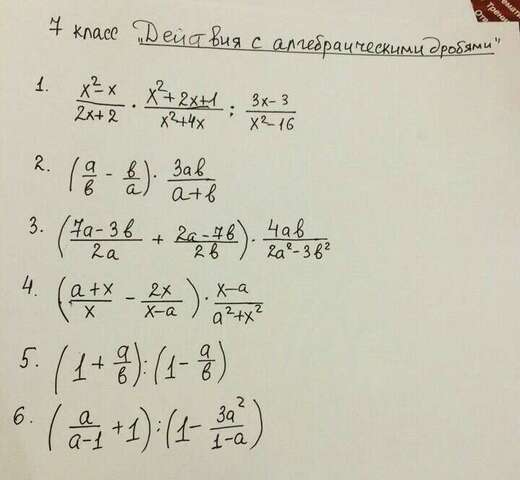 7 класс „Действия с алгебраическими дробями"
1. \frac{x^2-x}{2x+2} \cdot \frac{x^2+2x+1}{x^2+4x} ; \frac{3x-3}{x^2-16}
2. (\frac{a}{b} - \frac{b}{a}) \cdot \frac{3ab}{a+b}
3. (\frac{7a-3b}{2a} + \frac{2a-7b}{2b}) \cdot \frac{4ab}{2a^2-3b^2}
4. (\frac{a+x}{x} - \frac{2x}{x-a}) \cdot \frac{x-a}{a^2+x^2}
5. (1 + \frac{a}{b}) : (1 - \frac{a}{b})
6. (\frac{a}{a-1} + 1) : (1 - \frac{3a^2}{1-a})